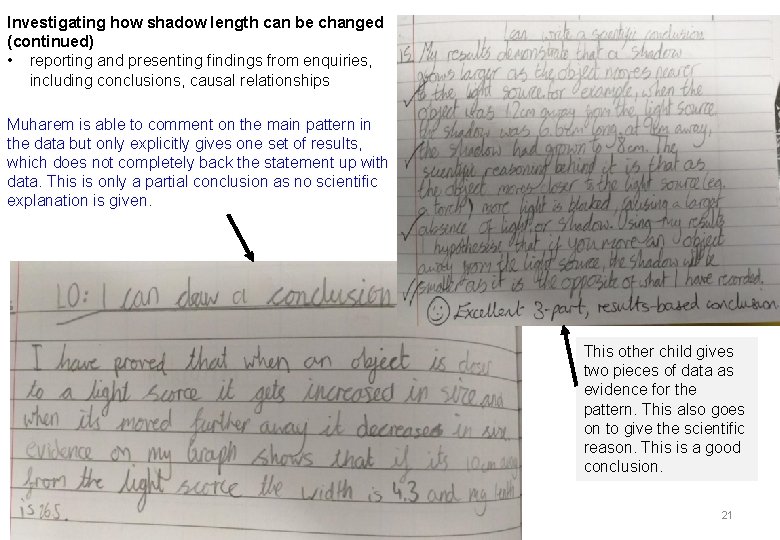 Investigating how shadow length can be changed
(continued)
• reporting and presenting findings from enquiries,
including conclusions, causal relationships
Muharem is able to comment on the main pattern in
the data but only explicitly gives one set of results,
which does not completely back the statement up with
data. This is only a partial conclusion as no scientific
explanation is given.
I can write a scientific conclusion
is. My results demonstrate that a shadow
grows larger as the object moves nearer
to the light source. for example, when the
object was 12cm away from the light source
the shadow was 6.6cm long, at 9cm away,
the shadow had grown to 8cm. The
scientific reasoning behind it is that as
the object moves closer to the light source (eg.
a torch) more light is blocked, causing a larger
absence of light, or shadow. Using my results
I hypothesise that if you move an object
away from the light source, the shadow will be
smaller as it is the opposite of what I have recorded.
Excellent 3-part, results-based conclusion
LO: I can draw a conclusion
I have proved that when an object is closer
to a light scorce it gets increased in size and
when its moved further away it decreases in size
evidence on my Graph shows that if its 10cm away
from the light scorce the width is 4.3 and my length
is 26.5.
This other child gives
two pieces of data as
evidence for the
pattern. This also goes
on to give the scientific
reason. This is a good
conclusion.
21